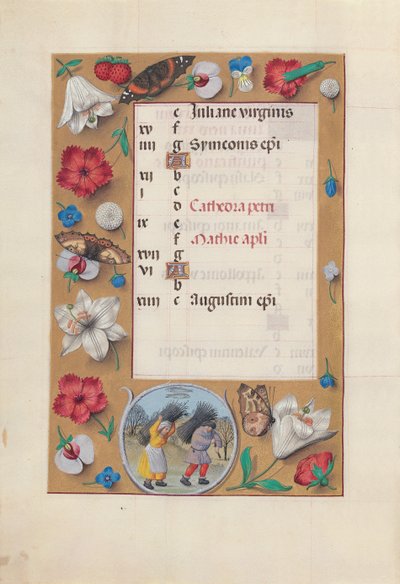 e Juliane virginis
xv f
iiii g Symeonis epi
A
xii b
i c
d Cathedra petri
ix e
f Mathie apli
xvii g
vi A
b
xiiii c Augustini epi